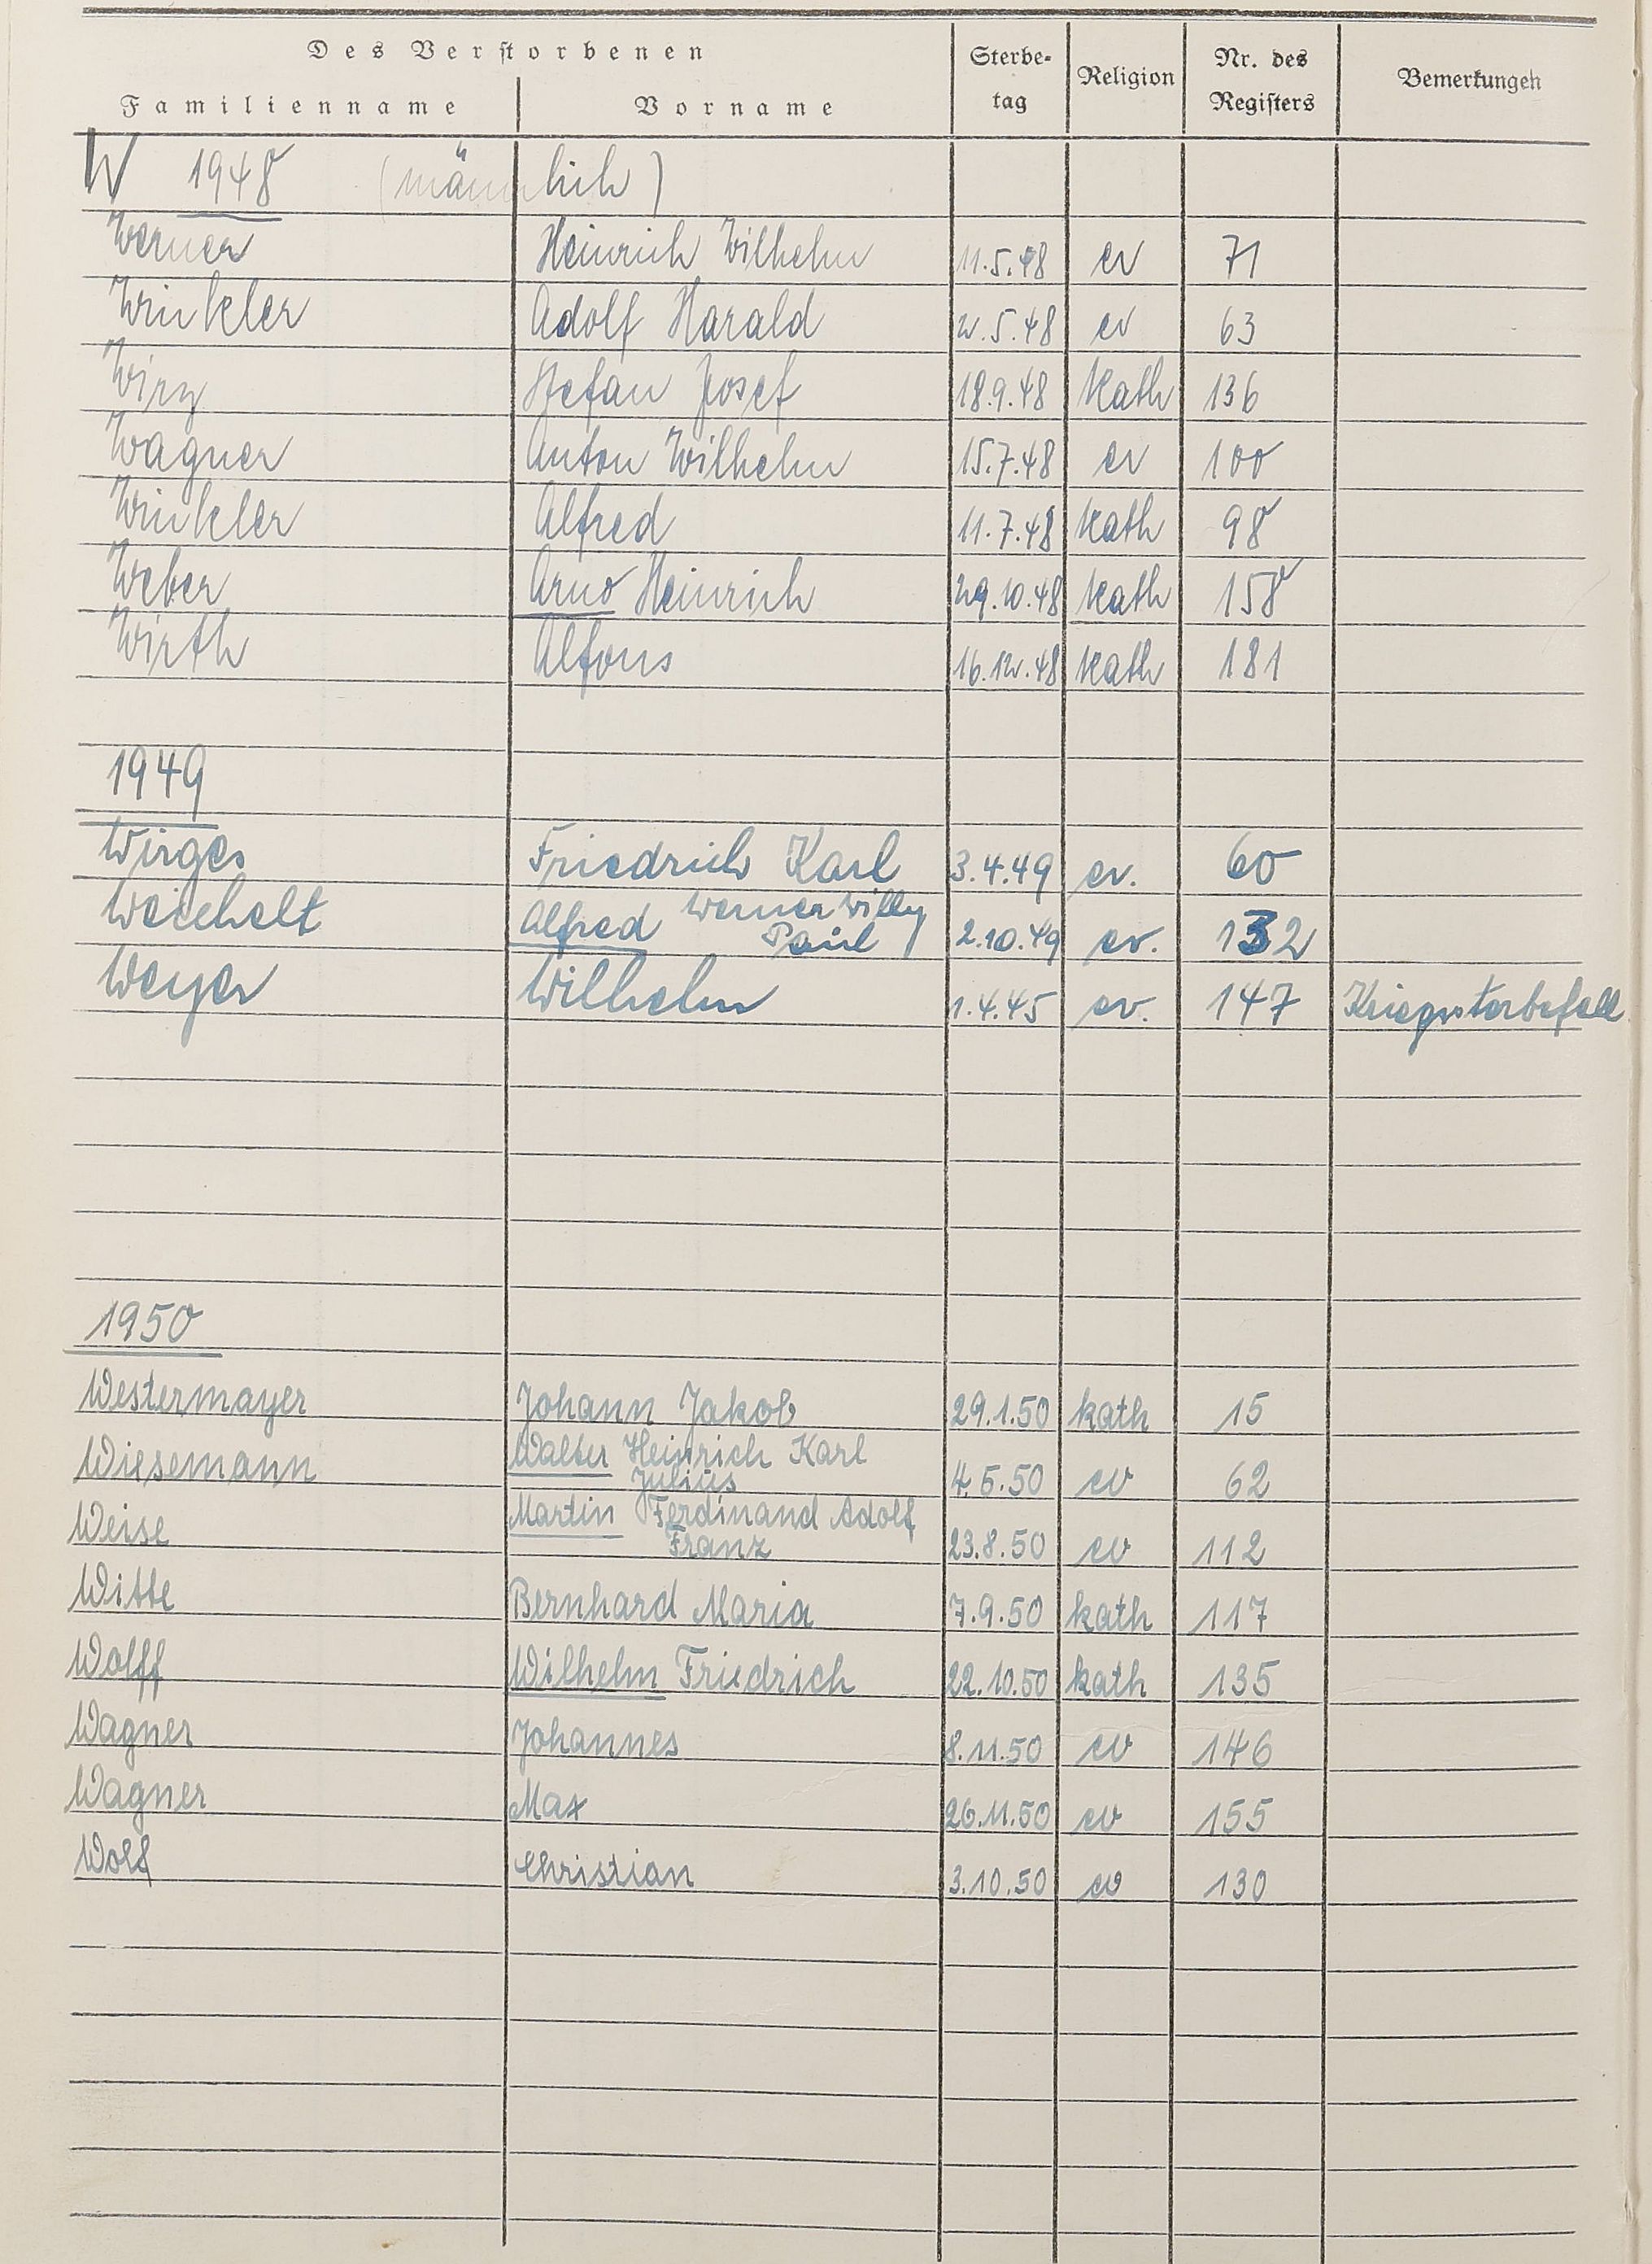 Des Verstorbenen
Familienname Vorname Sterbe-tag Religion Nr. des Registers Bemerkungen
W 1948 (männlich)
Werner Heinrich Wilhelm 11.5.48 ev 71
Winkler Adolf Harald 2.5.48 ev 63
Wirz Stefan Josef 18.9.48 kath 136
Wagner Anton Wilhelm 15.7.48 ev 100
Winkler Alfred 11.7.48 kath 98
Weber Arno Heinrich 29.10.48 kath 158
Wirth Alfons 16.12.48 kath 181
1949
Wirges Friedrich Karl 3.4.49 ev. 60
Weichelt Alfred Werner Willy Paul 2.10.49 ev. 132
Weyer Wilhelm 1.4.45 ev. 147 Kriegssterbefall
1950
Westermayer Johann Jakob 29.1.50 kath 15
Wiesemann Walter Heinrich Karl Julius 4.5.50 ev 62
Weise Martin Ferdinand Adolf Franz 23.8.50 ev 112
Witte Bernhard Maria 7.9.50 kath 117
Wolff Wilhelm Friedrich 22.10.50 kath 135
Wagner Johannes 8.11.50 ev 146
Wagner Max 26.11.50 ev 155
Wolf Christian 3.10.50 ev 130